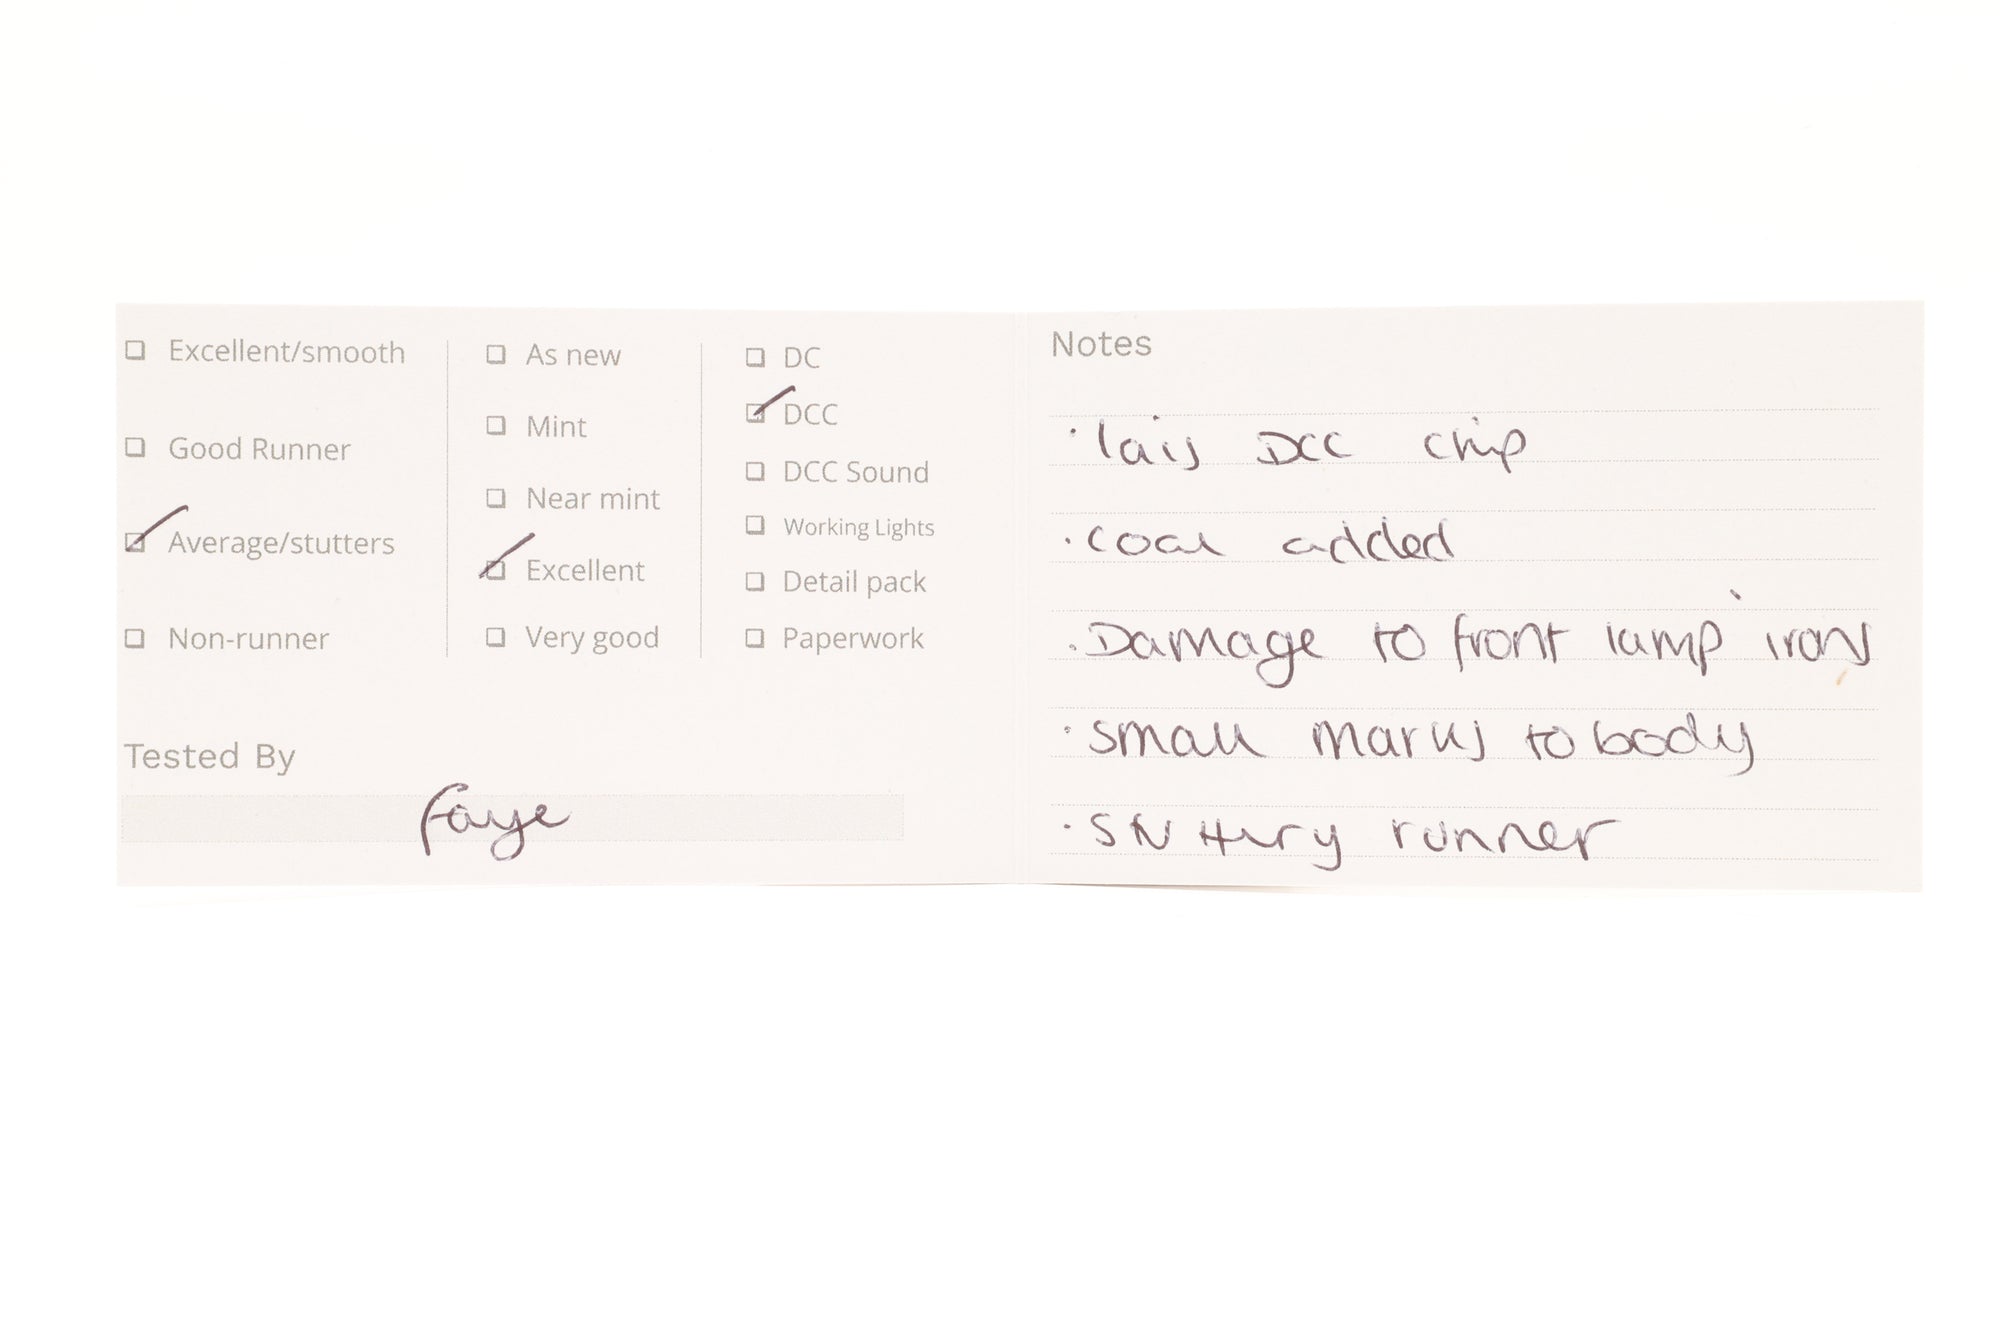 Excellent/smooth
Good Runner
Average/stutters
Non-runner
As new
Mint
Near mint
Excellent
Very good
DC
DCC
DCC Sound
Working Lights
Detail pack
Paperwork
Tested By
Faye
Notes
· lais DCC chip
· coal added
· Damage to front lamp irons
· small marks to body
· stuttery runner